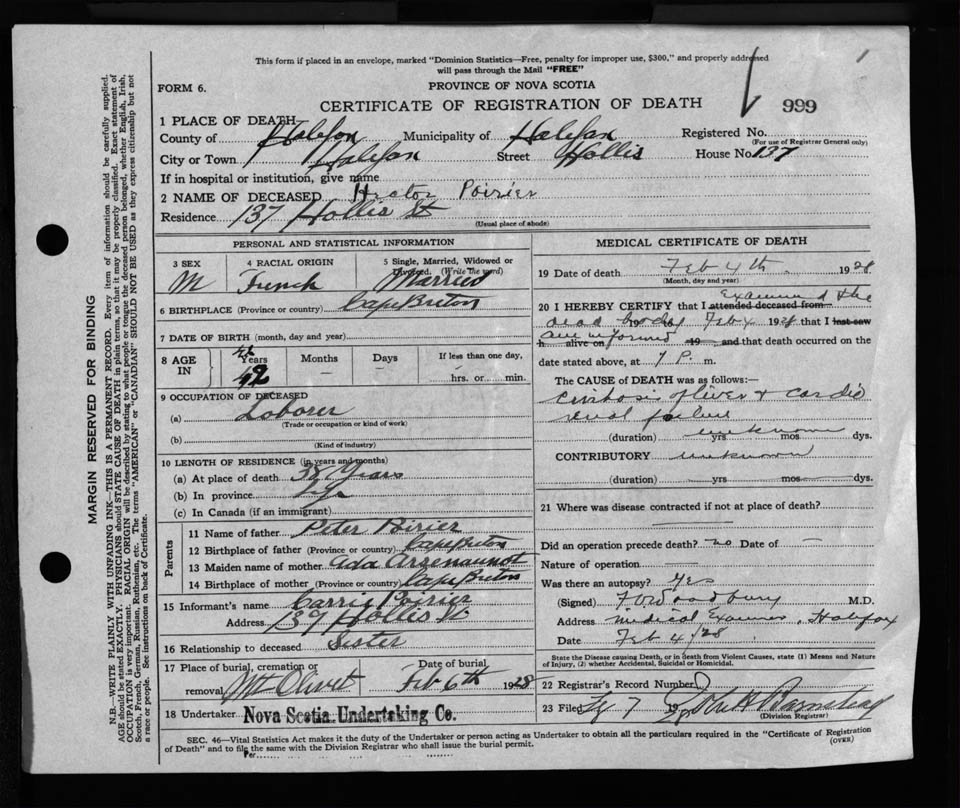 This form if placed in an envelope, marked "Dominion Statistics—Free, penalty for improper use, $300," and properly addressed
will pass through the Mail "FREE"
FORM 6.
PROVINCE OF NOVA SCOTIA
CERTIFICATE OF REGISTRATION OF DEATH
999
1 PLACE OF DEATH
County of Halifax Municipality of Halifax Registered No.
(For use of Registrar General only)
City or Town Halifax Street Hollis House No. 137
If in hospital or institution, give name
2 NAME OF DECEASED Hector Poirier
Residence 137 Hollis St
(Usual place of abode)
PERSONAL AND STATISTICAL INFORMATION
3 SEX 4 RACIAL ORIGIN 5 Single, Married, Widowed or
Divorced. (Write the word)
M French Married
6 BIRTHPLACE (Province or country) Cape Breton
7 DATE OF BIRTH (month, day and year)
8 AGE IN Years Months Days If less than one day,
42 — — hrs. or min.
9 OCCUPATION OF DECEASED
(a) Laborer
(Trade or occupation or kind of work)
(b)
(Kind of industry)
10 LENGTH OF RESIDENCE (in years and months)
(a) At place of death 38 Years
(b) In province life
(c) In Canada (if an immigrant)
Parents
11 Name of father Peter Poirier
12 Birthplace of father (Province or country) Cape Breton
13 Maiden name of mother Ada Arsenault
14 Birthplace of mother (Province or country) Cape Breton
15 Informant's name Carrie Poirier
Address Hollis St
16 Relationship to deceased Sister
17 Place of burial, cremation or Date of burial
removal Mt Olivet Feb 6th 1928
18 Undertaker Nova Scotia Undertaking Co.
MEDICAL CERTIFICATE OF DEATH
19 Date of death Feb 4th 1928
(Month, day and year)
20 I HEREBY CERTIFY that I attended deceased from Examined the
dead body Feb 4 1928 that I last saw
am informed h alive on 19 and that death occurred on the
date stated above, at 7 P. m.
The CAUSE of DEATH was as follows:
Cirrhosis of liver & cardio
renal failure
(duration) unknown yrs mos dys.
CONTRIBUTORY unknown
(duration) yrs mos dys.
21 Where was disease contracted if not at place of death?
Did an operation precede death? no Date of —
Nature of operation —
Was there an autopsy? Yes
(Signed) Woodbury M.D.
Address Medical Examiner, Halifax
Date Feb 4/28
State the Disease causing Death, or in death from Violent Causes, state (1) Means and Nature
of Injury, (2) whether Accidental, Suicidal or Homicidal.
22 Registrar's Record Number
23 Filed 7 1928 John H Barnstead
(Division Registrar)
SEC. 46—Vital Statistics Act makes it the duty of the Undertaker or person acting as Undertaker to obtain all the particulars required in the "Certificate of Registration
of Death" and to file the same with the Division Registrar who shall issue the burial permit. (OVER)
Per
MARGIN RESERVED FOR BINDING
N.B.—WRITE PLAINLY WITH UNFADING INK—THIS IS A PERMANENT RECORD. Every item of information should be carefully supplied.
AGE should be stated EXACTLY. PHYSICIANS should STATE CAUSE OF DEATH in plain terms, so that it may be properly classified. Exact statement of
OCCUPATION is very important. RACIAL ORIGIN will be described by stating to what people or tongue the deceased person belonged, whether English, Irish,
Scotch, French, German, Russian, Ruthenian, etc. The terms "AMERICAN" or "CANADIAN" SHOULD NOT BE USED as they express citizenship but not
a race or people. See instructions on back of Certificate.